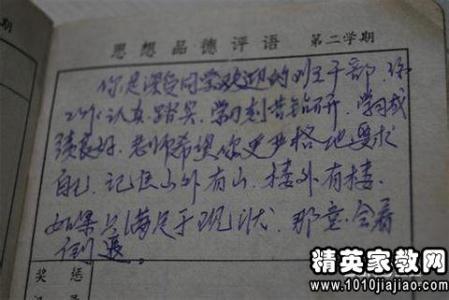 思想品德评语 第二学期
你是深受同学欢迎的班干部 你
工作认真.踏实.学习刻苦钻研.学习成
绩良好.老师希望你更严格地要求
自己.记住山外有山.楼外有楼.
如果只满足于现状.那意会着
倒退。
奖惩
精英家教网
www.1010jiajiao.com